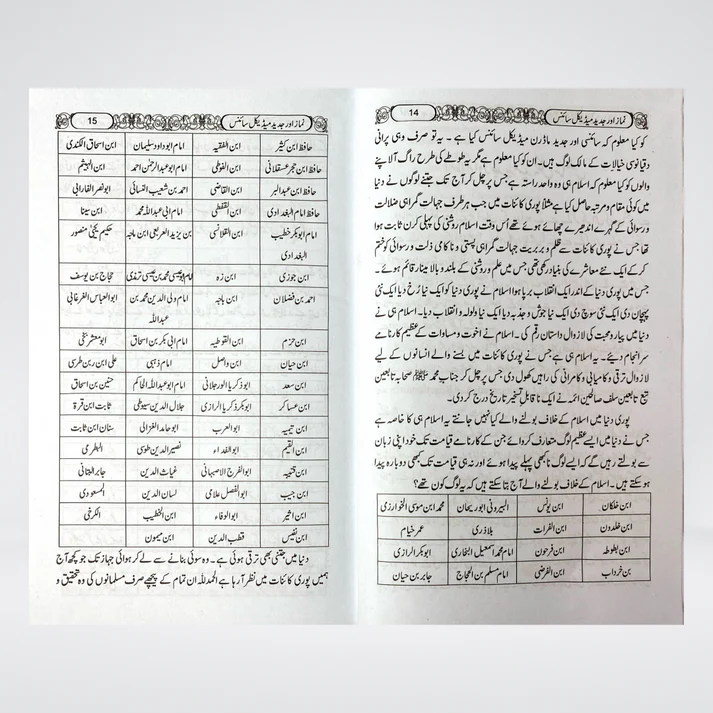 نماز اور جدید میڈیکل سائنس 14
کو کیا معلوم کہ سائنسی اور جدید ماڈرن میڈیکل سائنس کیا ہے ۔ یہ تو صرف وہی پرانی
دقیانوسی خیالات کے مالک لوگ ہیں۔ ان کو کیا معلوم ہے مگر یہ طوطے کی طرح راگ آلاپنے
والوں کو کیا معلوم کہ اسلام ہی وہ واحد راستہ ہے جس پر چل کر آج تک جتنے لوگوں نے دنیا
میں کوئی مقام ومرتبہ حاصل کیا ہے مثلاً پوری کائنات میں جب ہر طرف جہالت گمراہی ضلالت
ورسوائی کے گہرے اندھیرے چھائے ہوئے تھے اُس وقت اسلام روشنی کی پہلی کرن ثابت ہوا
تھا جس نے پوری کائنات سے ظلم و بربریت جہالت گمراہی پستی و ناکامی ذلت و رسوائی کو ختم
کر کے ایک نئے معاشرے کی بنیاد رکھی تھی جس میں علم و روشنی کے بلند و بالا مینار قائم ہوئے ۔
جس میں پوری دنیا کے اندر ایک انقلاب برپا ہوا اسلام نے پوری دنیا کو ایک نیا رُخ دیا ایک نئی
پہچان دی ایک نئی سوچ دی ایک نیا جوش و جذبہ دیا ایک نیا ولولہ و انقلاب دیا۔ اسلام ہی نے
دنیا میں پیار ومحبت کی لازوال داستان رقم کی ۔ اسلام نے اخوت و مساوات کے عظیم کارنامے
سرانجام دیئے ۔ یہ اسلام ہی ہے جس نے پوری کائنات میں بسنے والے انسانوں کے لیے
لازوال ترقی و کامیابی و کامرانی کی راہیں کھول دی جس پر چل کر جناب محمد ﷺ صحابہ تابعین
تبع تابعین سلف صالحین ائمہ نے ایک ناقابل تسخیر تاریخ درج کر دی۔
پوری دنیا میں اسلام کے خلاف بولنے والے کیا نہیں جانتے یہ اسلام ہی کا خاصہ ہے
جس نے دنیا میں ایسے عظیم لوگ متعارف کروائے جن کے کارنامے قیامت تک خود اپنی زبان
سے بولتے رہیں گے کہ ایسے لوگ نا بھی پہلے پیدا ہوئے اور نہ ہی قیامت تک کبھی دوبارہ پیدا
ہو سکتے ہیں ۔ اسلام کے خلاف بولنے والے آج بتا سکتے ہیں کہ یہ لوگ کون تھے؟
ابن خلکان ابن یونس البیرونی ابوریحان محمد ابن موسی الخوارزی
ابن خلدون ابن الفرات بلاذری عمر خیام
ابن بطوطہ ابن فرحون امام محمد اسمعیل البخاری ابوبکر الرازی
بن خرداب ابن الفرضی امام مسلم بن الحجاج جابر بن حیان
نماز اور جدید میڈیکل سائنس 15
حافظ ابن کثیر ابن الفقیہ امام ابوداود سلیمان ابن اسحاق الکندی
حافظ ابن حجر عسقلانی ابن الفوطی امام ابوعبدالرحمٰن احمد ابن الہیثم
حافظ ابن عبدالبر ابن القاضی احمد بن شعیب النسائی ابو نصر الفارابی
حافظ امام البغدادی ابن القفطی امام ابی عبداللہ محمد ابن سینا
امام ابوبکر خطیب ابن القلانسی بن یزید الربعی ابن ماجہ حکیم یحیٰی منصور
البغدادی
ابن جوزی ابن زہ امام ابوعیسی محمد بن عیسی ترمذی حجاج بن یوسف
احمد بن فضلان ابن باجہ امام ولی الدین محمد بن ابوالعباس الفرغانی
عبداللہ
ابن حزم ابن القوطیہ امام ابی بکر بن اسحاق ابو معشر بلخی
ابن حیان ابن واصل امام ذہبی علی ابن ربن طرسی
ابن سعد ابوذکریا الورجلانی امام ابوعبداللہ الحاکم حنین بن اسحاق
ابن عساکر ابوبکر ذکریا الرازی جلال الدین سیوطی ثابت ابن قرة
ابن تیمیہ ابوالعرب ابوحامد الغزالی سنان ابن ثابت
ابن القیم ابوالفداء نصیر الدین طوسی
ابن قتیبہ ابوالفرج الاصبہانی غیاث الدین جابر البتانی
ابن جیب ابوالفضل علامی لسان الدین المسعودی
ابن اثیر ابوالوفاء ابن الخطیب الکرخی
ابن نفیس قطب الدین ابن میمون
دنیا میں جتنی بھی ترقی ہوئی ہے ۔ وہ سوئی بنانے سے لے کر ہوائی جہاز تک جو کچھ آج
ہمیں پوری کائنات میں نظر آ رہا ہے الحمد للہ ان تمام کے پیچھے صرف مسلمانوں کی وہ تحقیق و